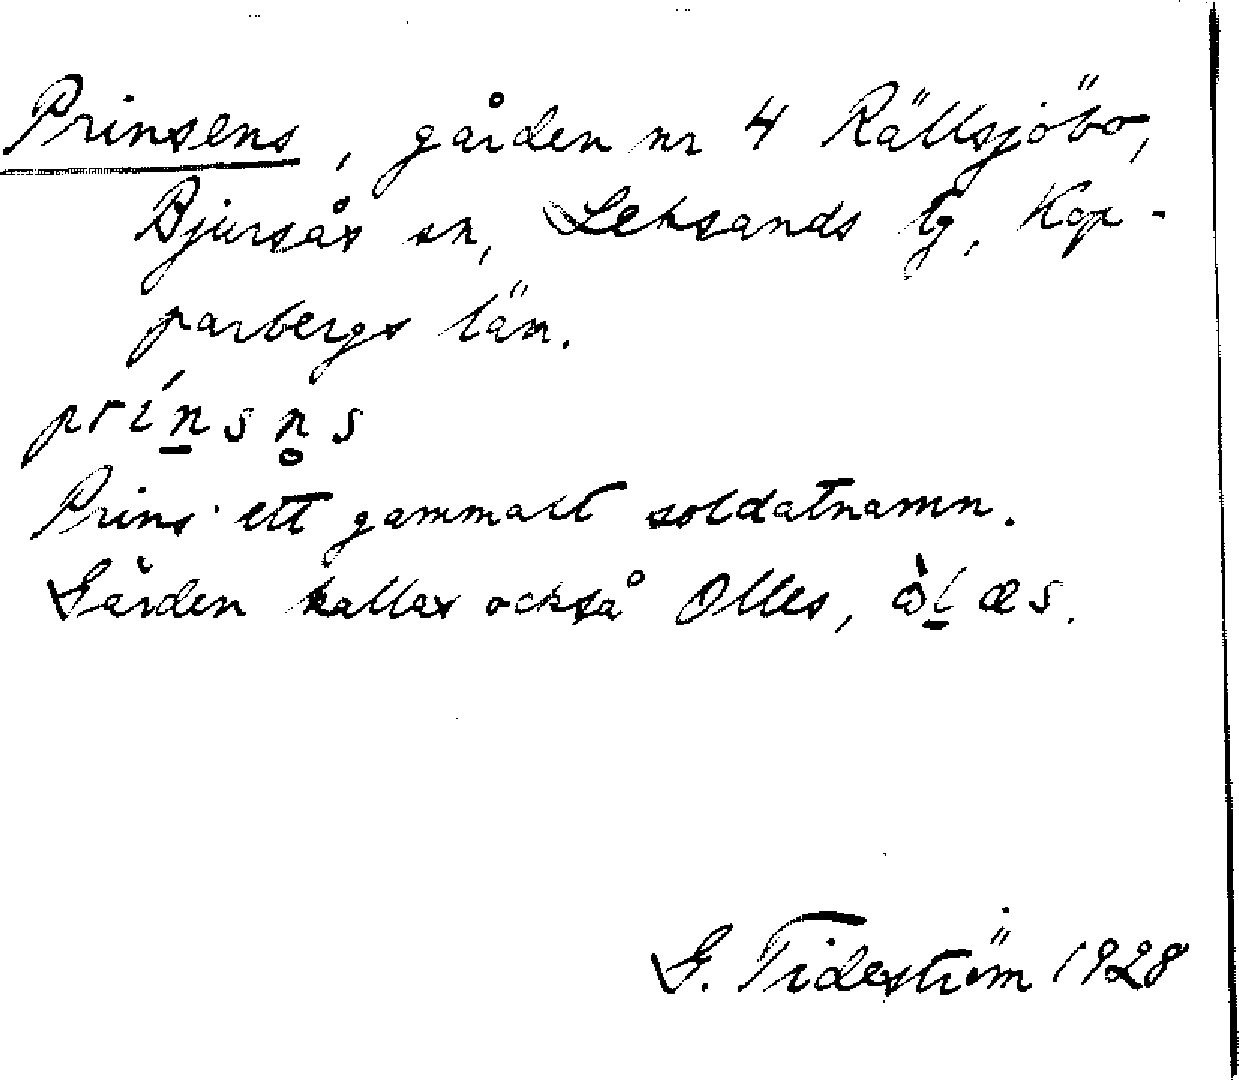 Prinsens, gården nr 4 Rällsjöbo,
Bjursås sn, Leksands tg, Kop-
parbergs län.
prín̲sn̥s
Prins ett gammalt soldatnamn.
Gården kallas också Olles, òl̲æs.
G. Tideström 1928